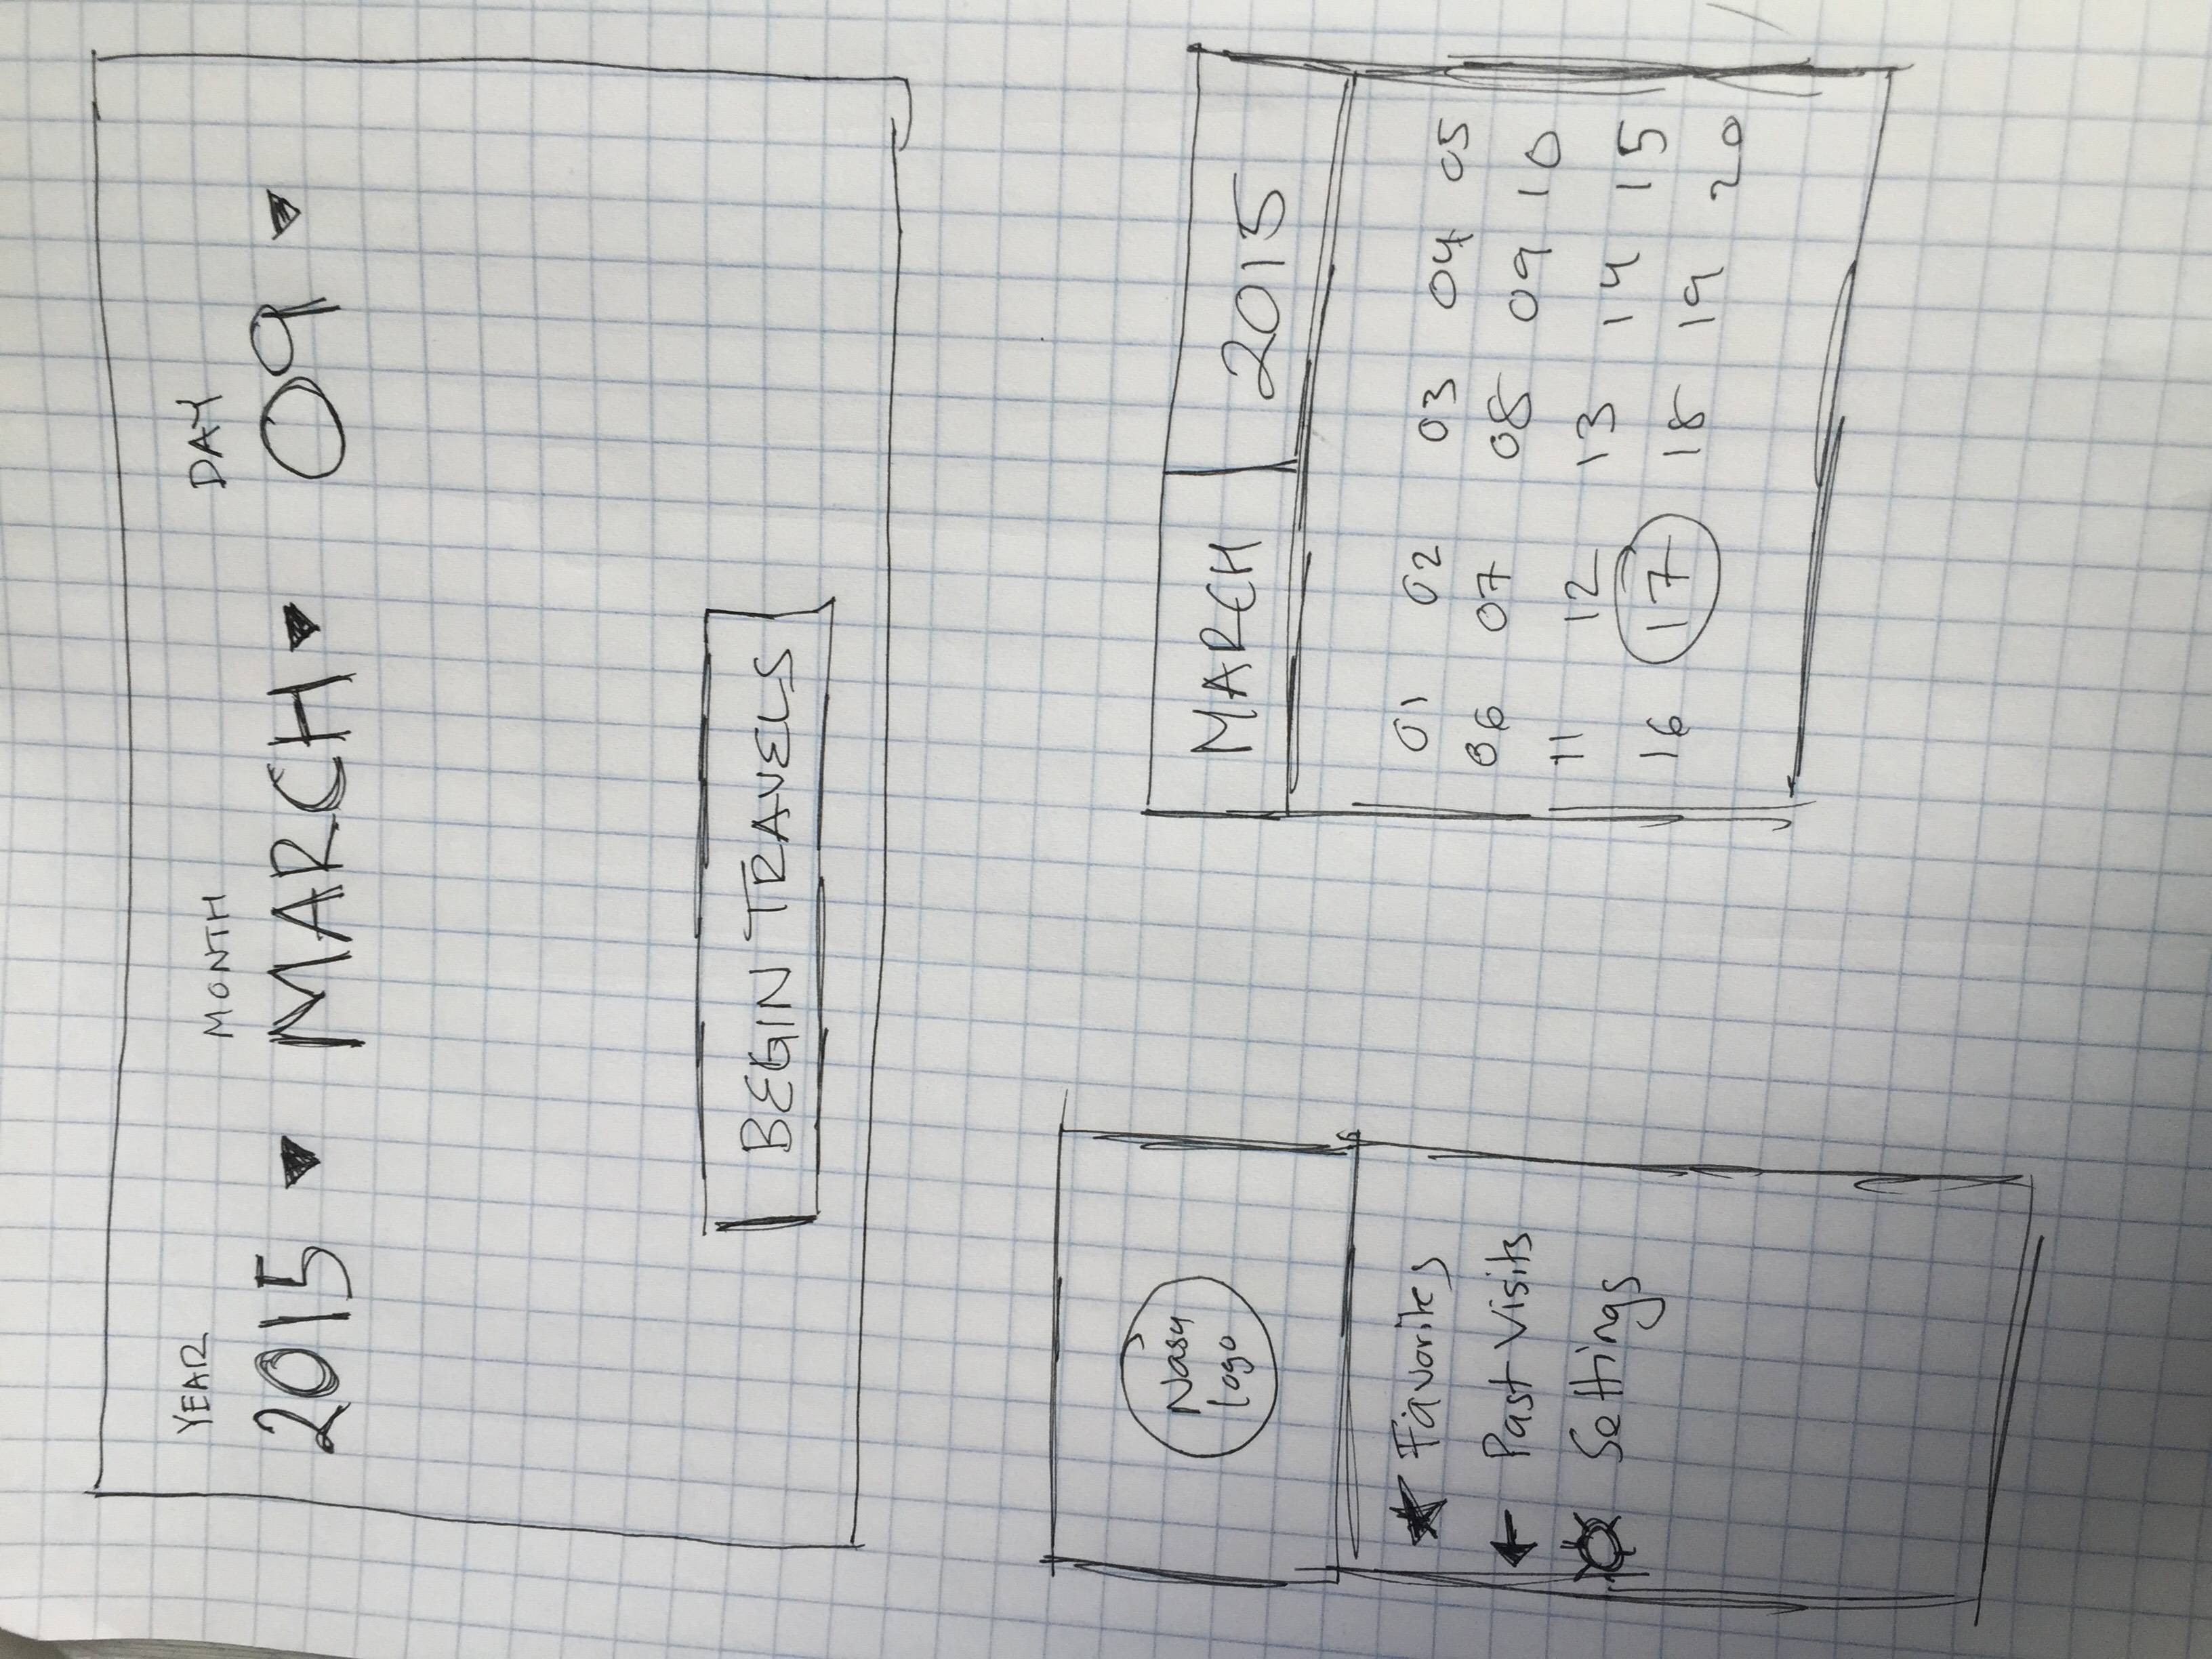 YEAR MONTH DAY
2015 MARCH 09
BEGIN TRAVELS
Nasa
logo
Favorites
Past Visits
Settings
MARCH 2015
01 02 03 04 05
06 07 08 09 10
11 12 13 14 15
16 17 18 19 20